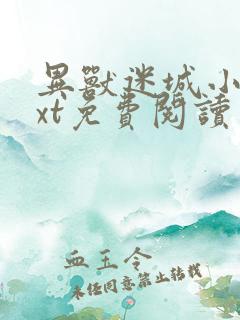 異獸迷城小
xt免費閱讀
血玉令
未经同意禁止转载